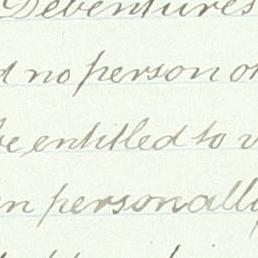 Debentures
no person or
be entitled to v
n personally